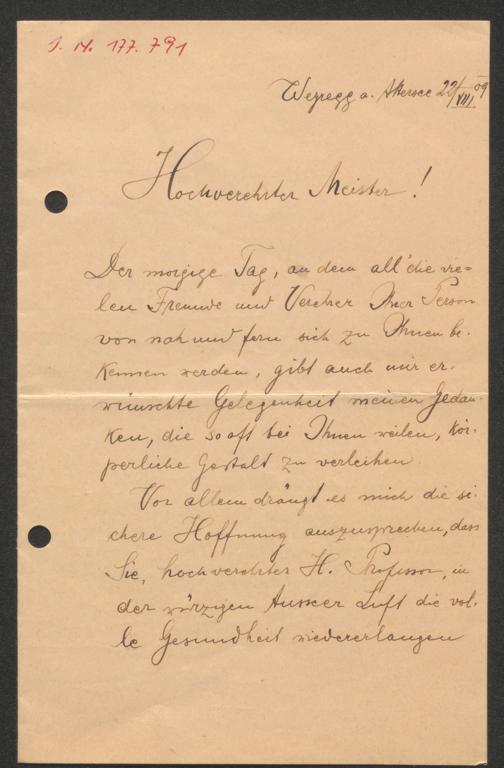 J. N. 177.791
Weyregg a. Attersee 22/VIII 09
Hochverehrter Meister!
Der morgige Tag, an dem all' die vie=
len Freunde und Verehrer Ihrer Person
von nah und fern sich zu Ihnen be-
kennen werden, gibt auch mir er-
wünschte Gelegenheit meinen Gedan-
ken, die so oft bei Ihnen weilen, kör-
perliche Gestalt zu verleihen.
Vor allem drängt es mich die si-
chere Hoffnung auszusprechen, dass
Sie, hochverehrter H. Professor, in
der würzigen Ausseer Luft die vol-
le Gesundheit wiedererlangen